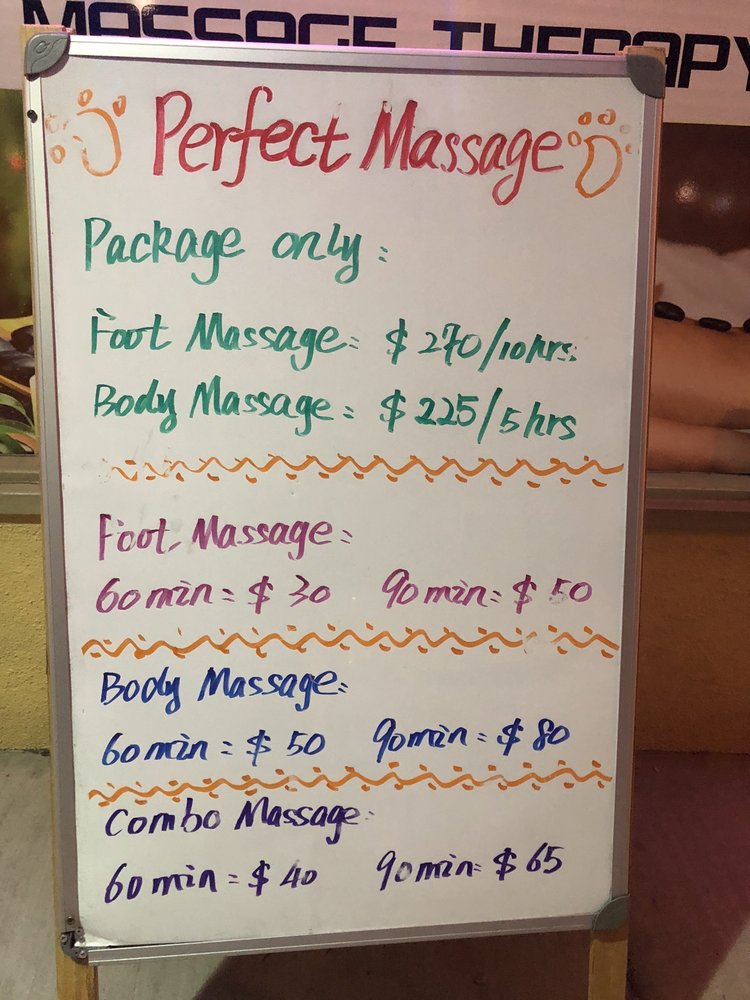 MASSAGE THERAPY
Perfect Massage
Package only :
Foot Massage: $270/10hrs:
Body Massage: $225/5hrs
Foot Massage:
60min: $30 90min: $50
Body Massage:
60min: $50 90min: $80
Combo Massage:
60min: $40 90min: $65